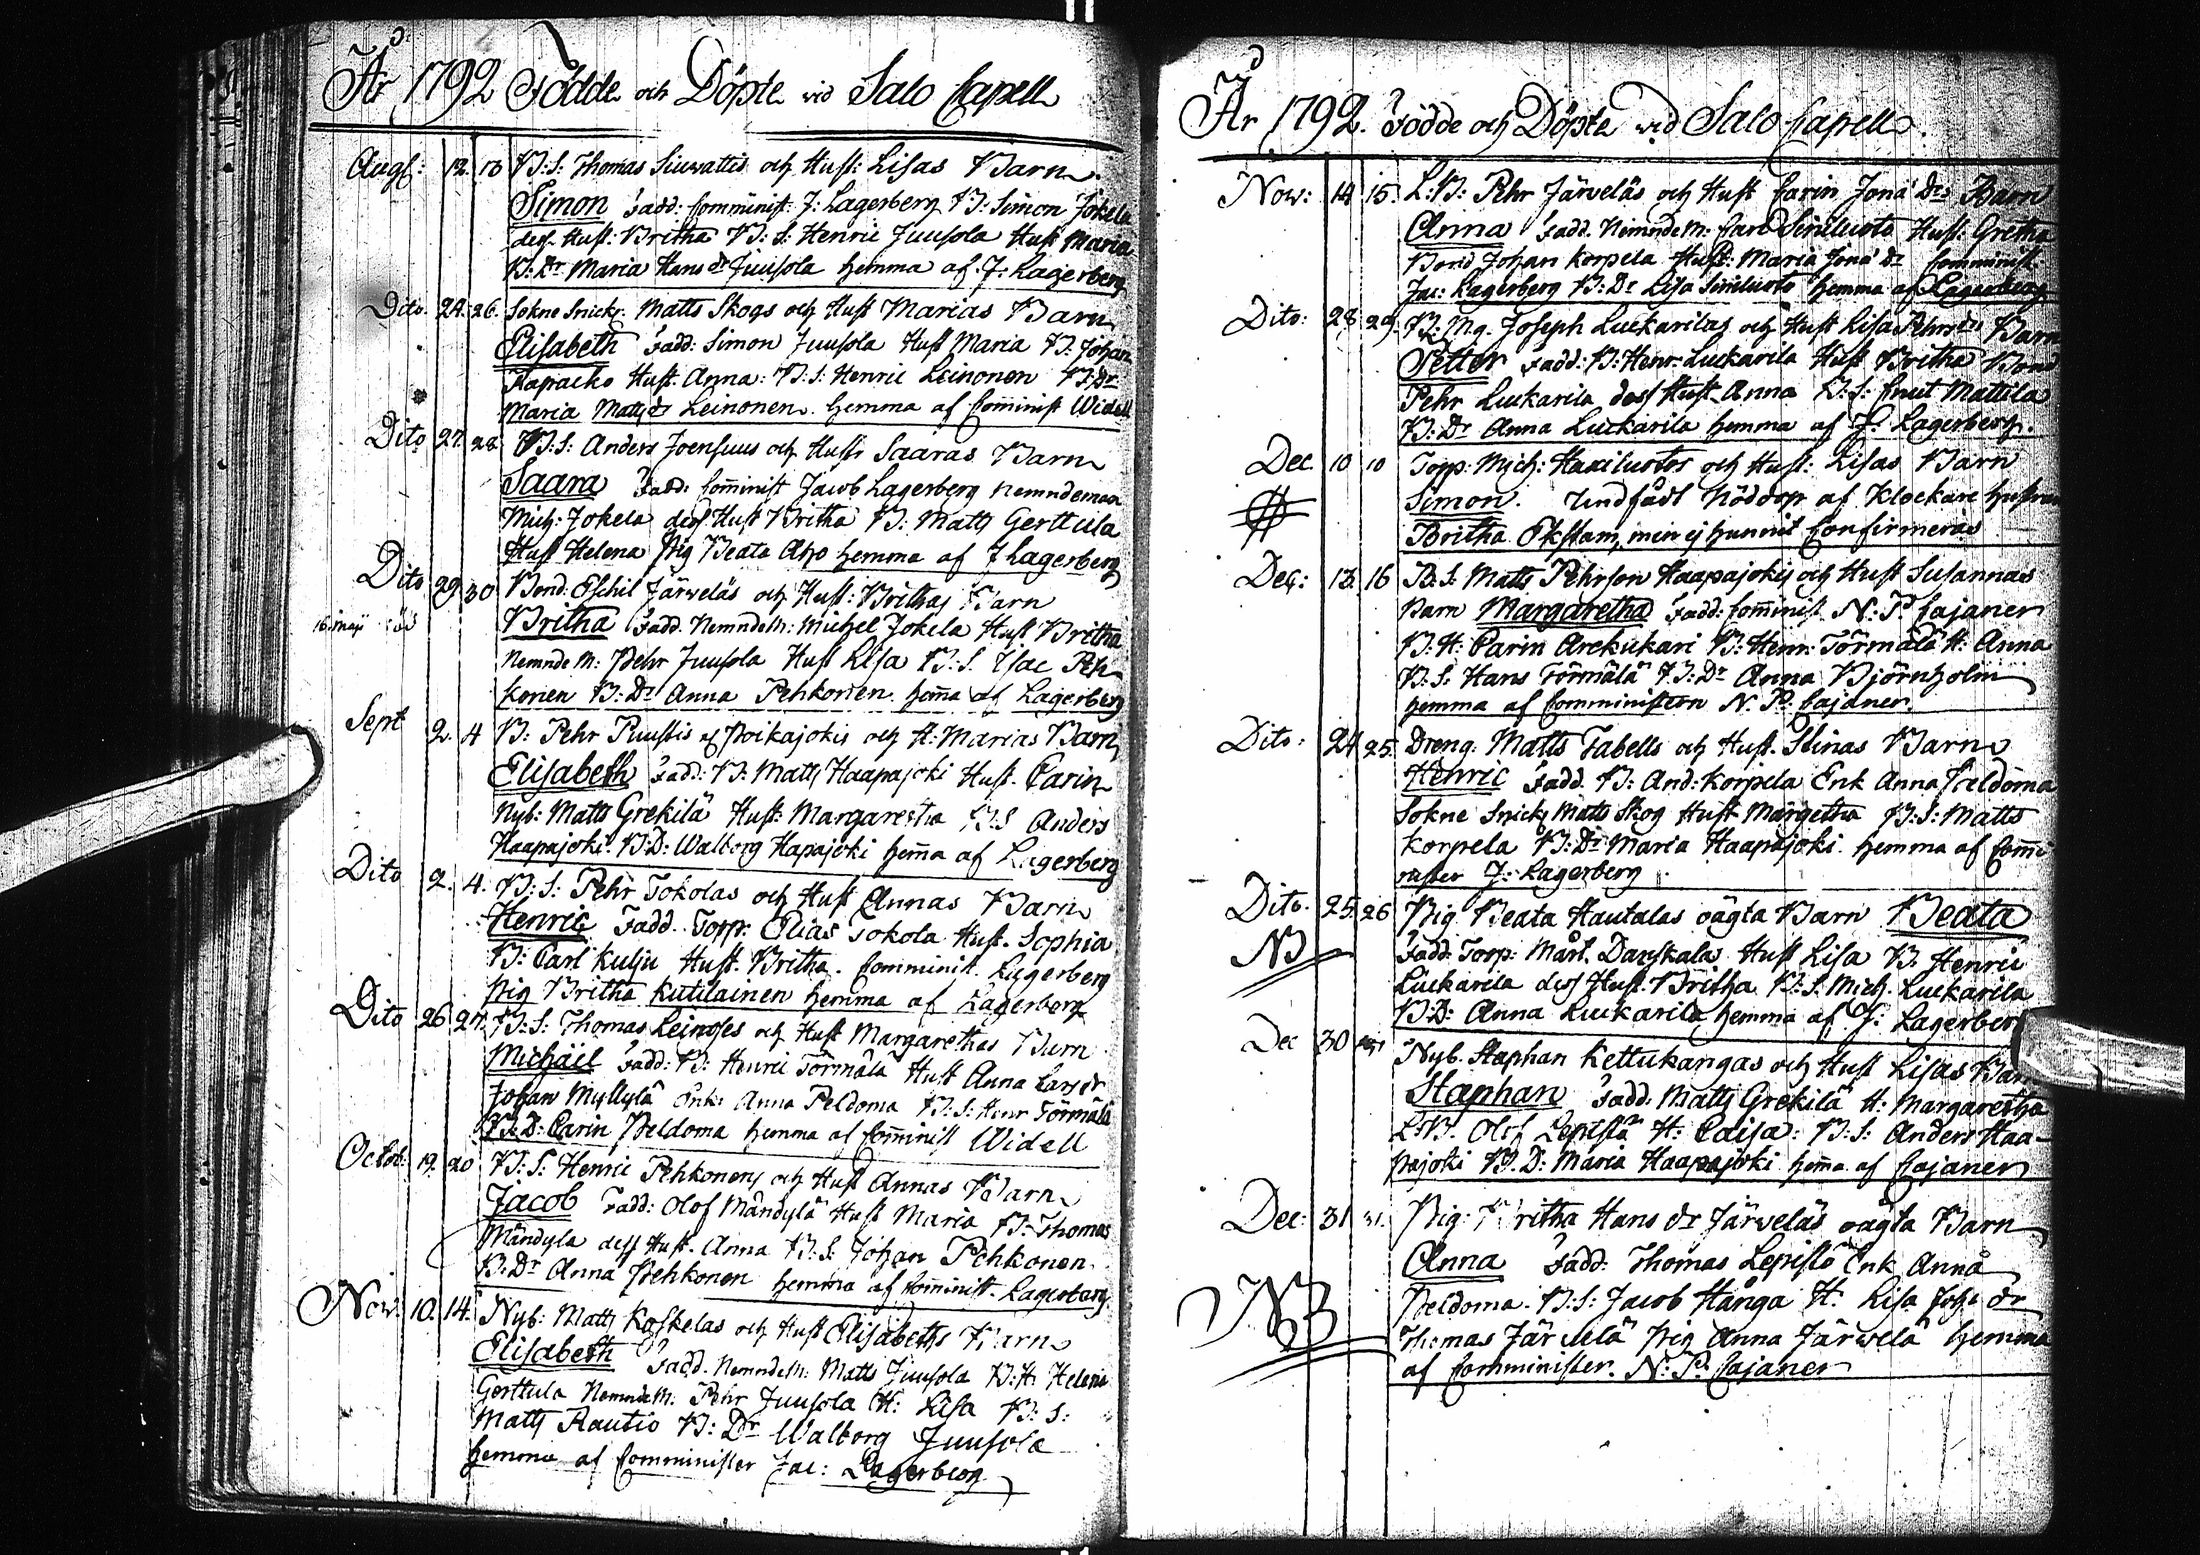 År 1792 Födde och Döpte vid Salo Capell
Augs: 12. 13 B: S: Thomas Siuwattis och Hust: Lisas Barn
Simon Fadd: Comminist: J: Lagerberg B: Simon Jokela
dess Hust: Britha B: S: Henric Juusola Hust Maria
B: Dr Maria Hans dr Juusola hemma af J: Lagerberg
Dito. 24. 26. Sokne Snick: Matts Skogs och Hust Marias Barn
Elisabeth Fadd: Simon Juusola Hust Maria B: Johan
Hust. Anna: B: S: Henric Leinonen B: Dr
Maria Matts dr Leinonen. hemma af Comminist Widell
Dito 27. 28. B: S: Anders Joensuus och Hustr Saaras Barn
Saara Fadd: Comminist Jacob Lagerberg Nemndeman
Mich: Jokela dess Hust Britha B: Matts Gerttula
Hust Helena Pig Beata Aho hemma af J Lagerberg
Dito 29 30 Bond: Eschil Järweläs och Hust: Brithas Barn
16 maji
Britha Fadd. Nemnde M: Michel Jokela Hust Britha
Nemnde M: Pehr Juusola Hust Lisa B: S. Isac Peh
konen B: Dr Anna Pehkonen. hem̄a af Lagerberg
Sept 2. 4 B: Pehr Puustis af Poikajokis och H: Marias Barn
Elisabeth Fadd: B: Matts Haapajoki Hust. Carin
Nyb: Matts Grekilä Hust: Margaretha B: S Anders
Haapajoki. B: D: Walborg Hapajoki hem̄a af Lagerberg
Dito 2. 4. B: S: Pehr Tokolas och Hust Annas Barn
Henric Fadd. Torp: Elias Tokola Hust. Sophia
B: Carl Kulju Hust. Britha. Comminist. Lagerberg
Pig Britha Kutilainen hemma af Lagerberg
Dito 26 27. B: S: Thomas och Hust Margarethas Barn
Michäil Fadd: B: Henric Törmälä Hust Anna Lars dr
Johan Myllylä Enk: Anna Peldoma B: S: Henr Törmälä
B: D: Carin Peldoma hemma af Com̄inist Widell
Octob: 19. 20 B: S: Henric Pehkonens och Hust Annas Barn
Jacob Fadd: Olof Mändylä Hust Maria B: Thomas
Mändyla dess Hust. Anna B: S: Johan Pehkonen
B: Dr Anna Pehkonen hemma af Com̄inist. Lagerberg.
Now: 10. 14. Nyb: Matts Koskelas och Hust Elisabeths Barn
Elisabeth Fadd. NemndeM: Matts Juusola B: H: Helena
Gerttula NemndeM: Pehr Juusola H: Lisa B: S:
Matts Rautio B: Dr Walborg Juusola
hemma af Comminister Jac: Lagerberg
År 1792. Födde och Döpte vid Salo Capell.
Now: 14 15. L: B: Pehr Järweläs och Hust Carin Jona Drs Barn
Anna Fadd. Nemnde M. Carl Siniluoto Hust: Gretha
Bond Johan Korpela Hust: Maria Jona dr Comminist
Jac: Lagerberg B: Dr Lisa Siniluoto hemma af Lagerberg
Dito: 28 29. B: Mg. Joseph Luckarilas och Hust Lisa Pehrs drs Barn
Petter Fadd: B: Henr: Luckarila Hust Britha Bond
Pehr Luckarila dess Hust. Anna B: S: Cnut Mattila
B: Dr Anna Luckarila hemma af J: Lagerberg.
Dec 10 10 Torp: Mich: Haxiluotos och Hust: Lisas Barn
Simon. Undfådt Nöddop af Klockare hustrun
Britha Ekstam, men ej hunnit Confirmeras
Dec: 13. 16 B. S. Matts Pehrson Haapajokis och Hust Susannas
Barn Margaretha Fadd: Com̄inist. N: P: Cajaner
B: H: Carin Arekukari B: Henr: Törmälä H: Anna
B: S. Hans Törmälä B: Dr Anna Björnholm
hemma af Comministern N. P. Cajaner.
Dito: 24 25. Dreng. Matts Tabells och Hust. Stinas Barn
Henric Fadd. B: And: Korpela Enk Anna Peldoma
Sokne Snick: Matts Skog Hust Margetha B: S: Matts
Korpela B: Dr Maria Haapajoki. hemma af Com̄i
nister J: Lagerberg.
Dito. 25. 26 Pig Beata Hautalas oägta Barn Beata
NB
Fadd: Torp: Mårt. Danskala Hust Lisa B. Henric
Luckarila dess Hust. Britha B: S. Mich. Luckarila
B: D: Anna Luckarila hemma af J: Lagerberg
Dec 30 31 Nyb. Staphan Kettukangas och Hust Lisas Barn
Staphan Fadd. Matts Grekilä H: Margaretha
L: B. Olof Lepistä H: Caisa: B: S: Anders Haa-
pajoki B. D: Maria Haapajoki hem̄a af Cajaner
Dec: 31 31. Pig: Britha Hans dr Järweläs oägta Barn
Anna Fadd: Thomas Lepistö Enk Anna
NB
Peldoma. B: S: Jacob Hånga H: Lisa Joh: dr
Thomas Järwelä Pig Anna Järwelä hemma
af Comminister. N: P. Cajaner